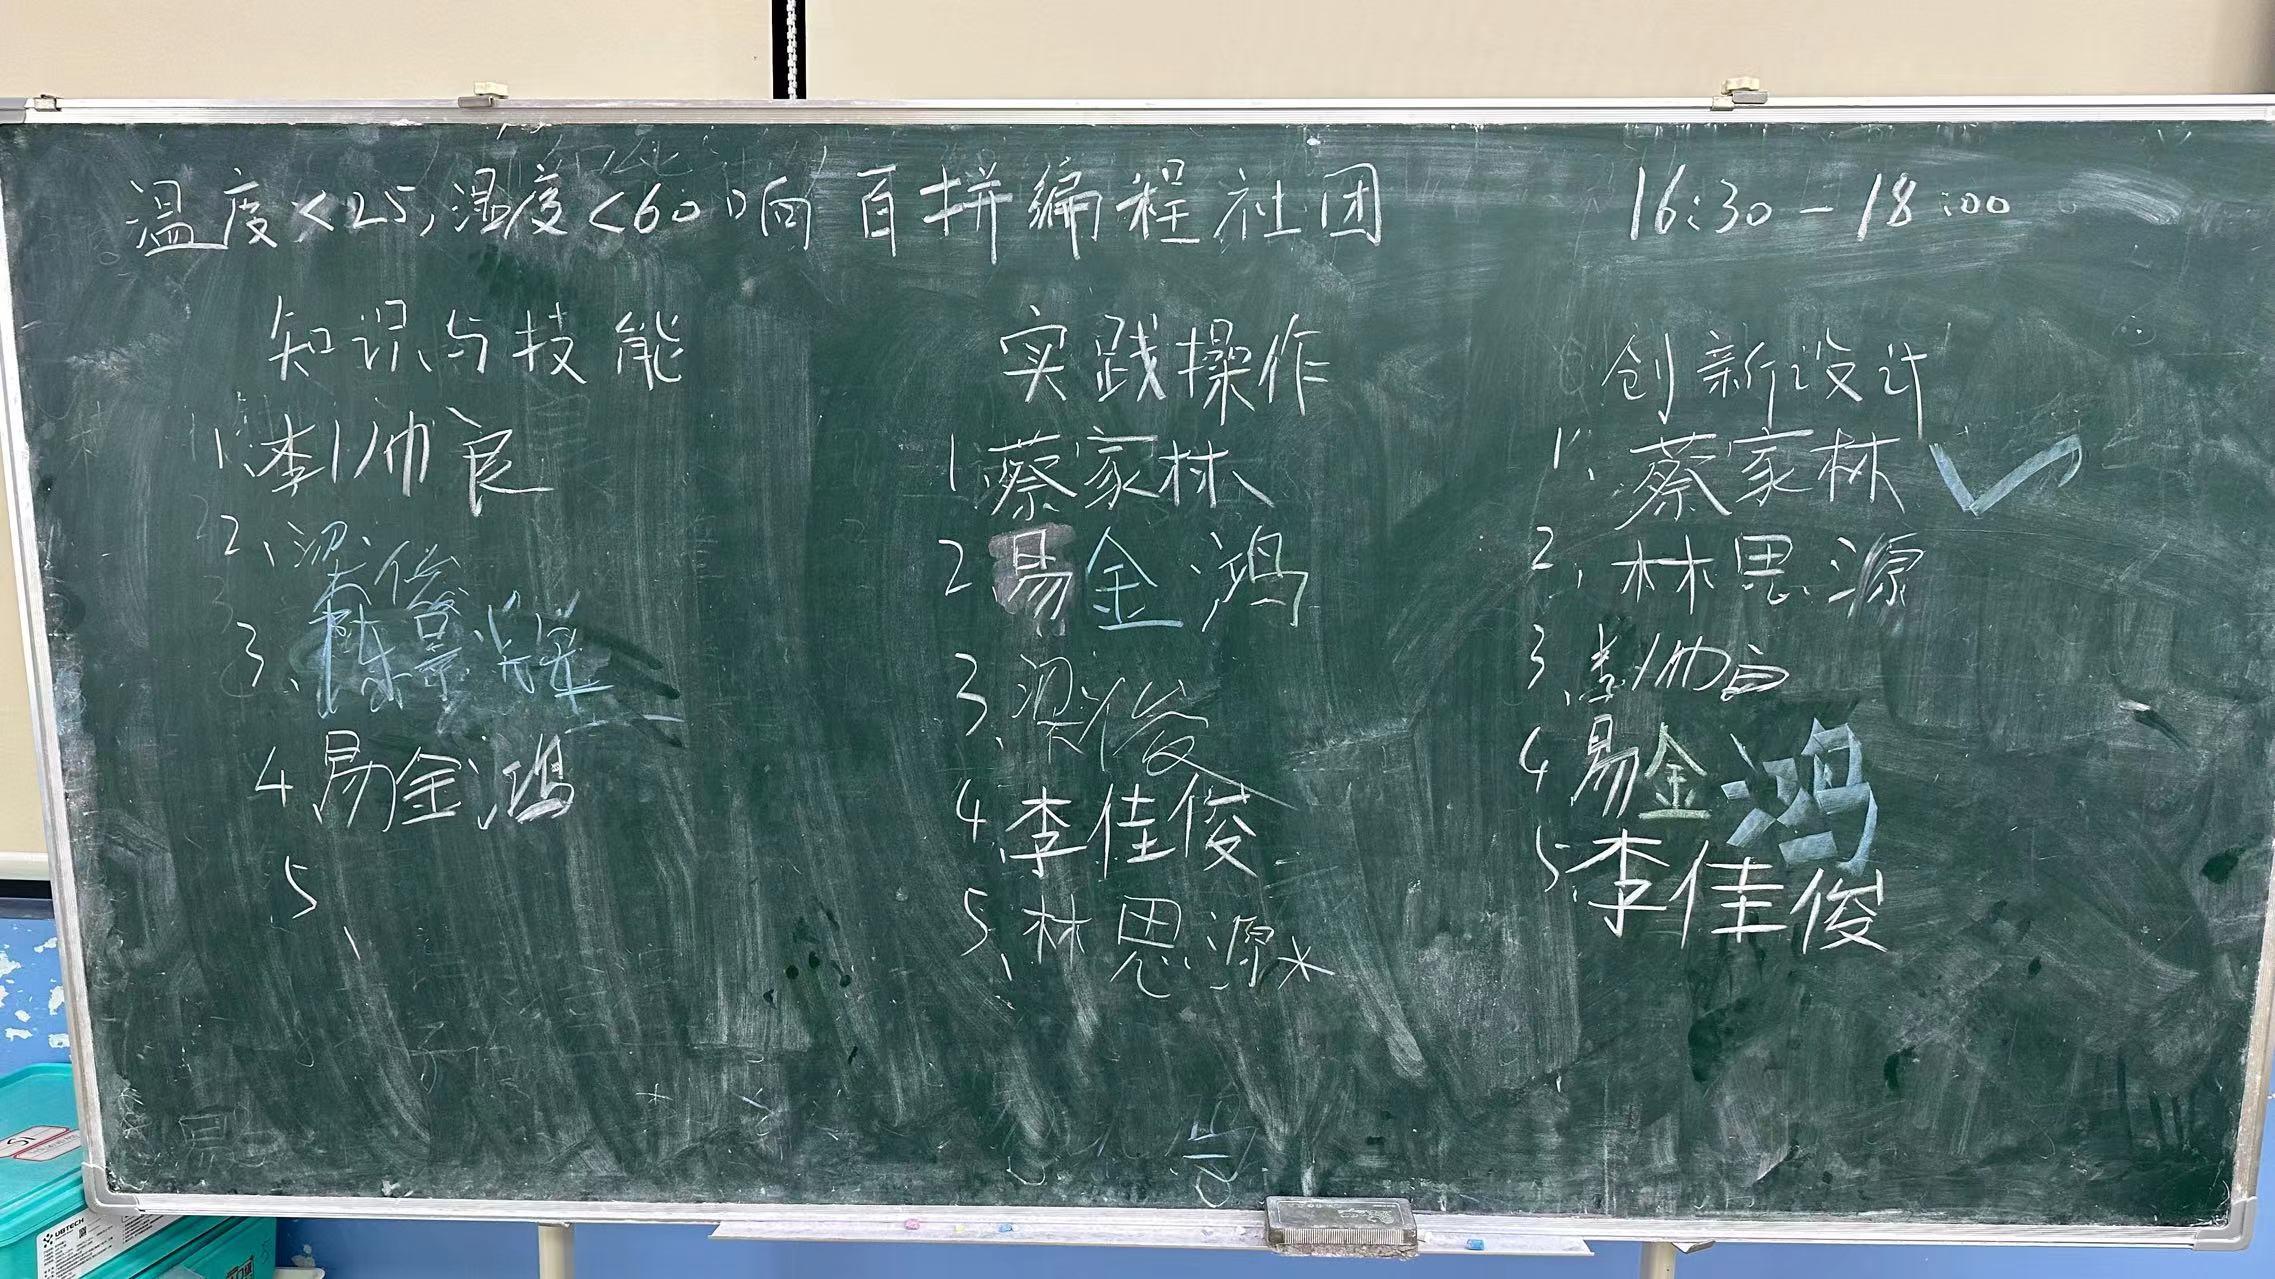 温度<25,湿度<60响 百拼编程社团 16:30-18:00
知识与技能
1、李帅良
2、梁俊
3、陈景雄
4 易金鸿
5、
实践操作
1 蔡家林
2 易金鸿
3、梁俊
4、李佳俊
5、林思源
创新设计
1、蔡家林
2、林思源
3、李帅良
4 易金鸿
5 李佳俊
UBTECH